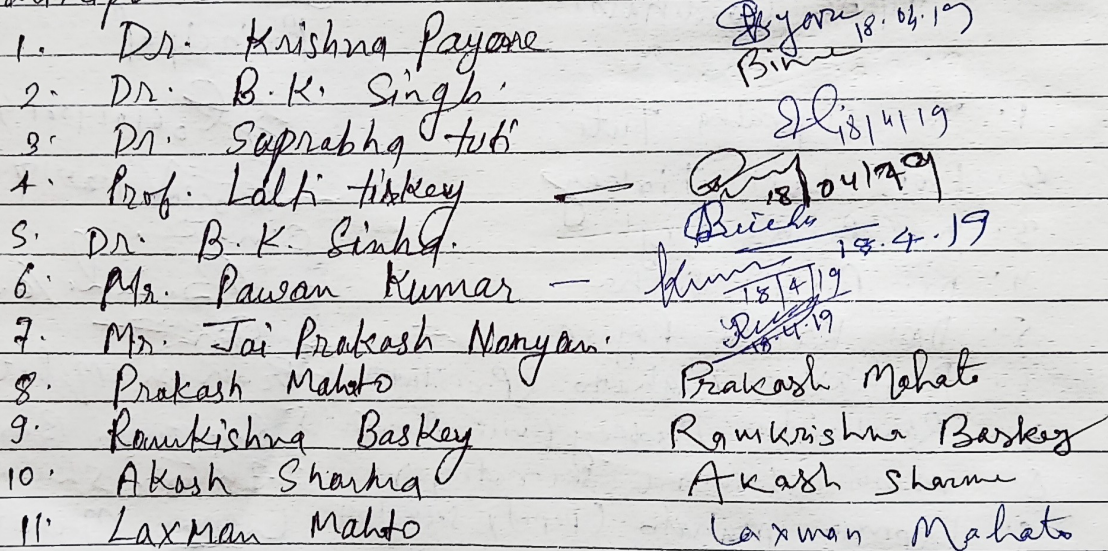 1. Dr. Krishna Payore 18.04.19
2. Dr. B.K. Singh.
3. Dr. Saprabha tuti 18/4/19
4. Prof. Lalti tiskey — 18/04/19
5. Dr. B.K. Sinha. 18.4.19
6. Mr. Pawan Kumar — 18/4/19
7. Mr. Jai Prakash Naryan. 18.4.19
8. Prakash Mahato Prakash Mahato
9. Ramkishna Baskey Ramkrishna Baskey
10. Akash Sharma Akash Sharma
11. Laxman Mahto Laxman Mahato